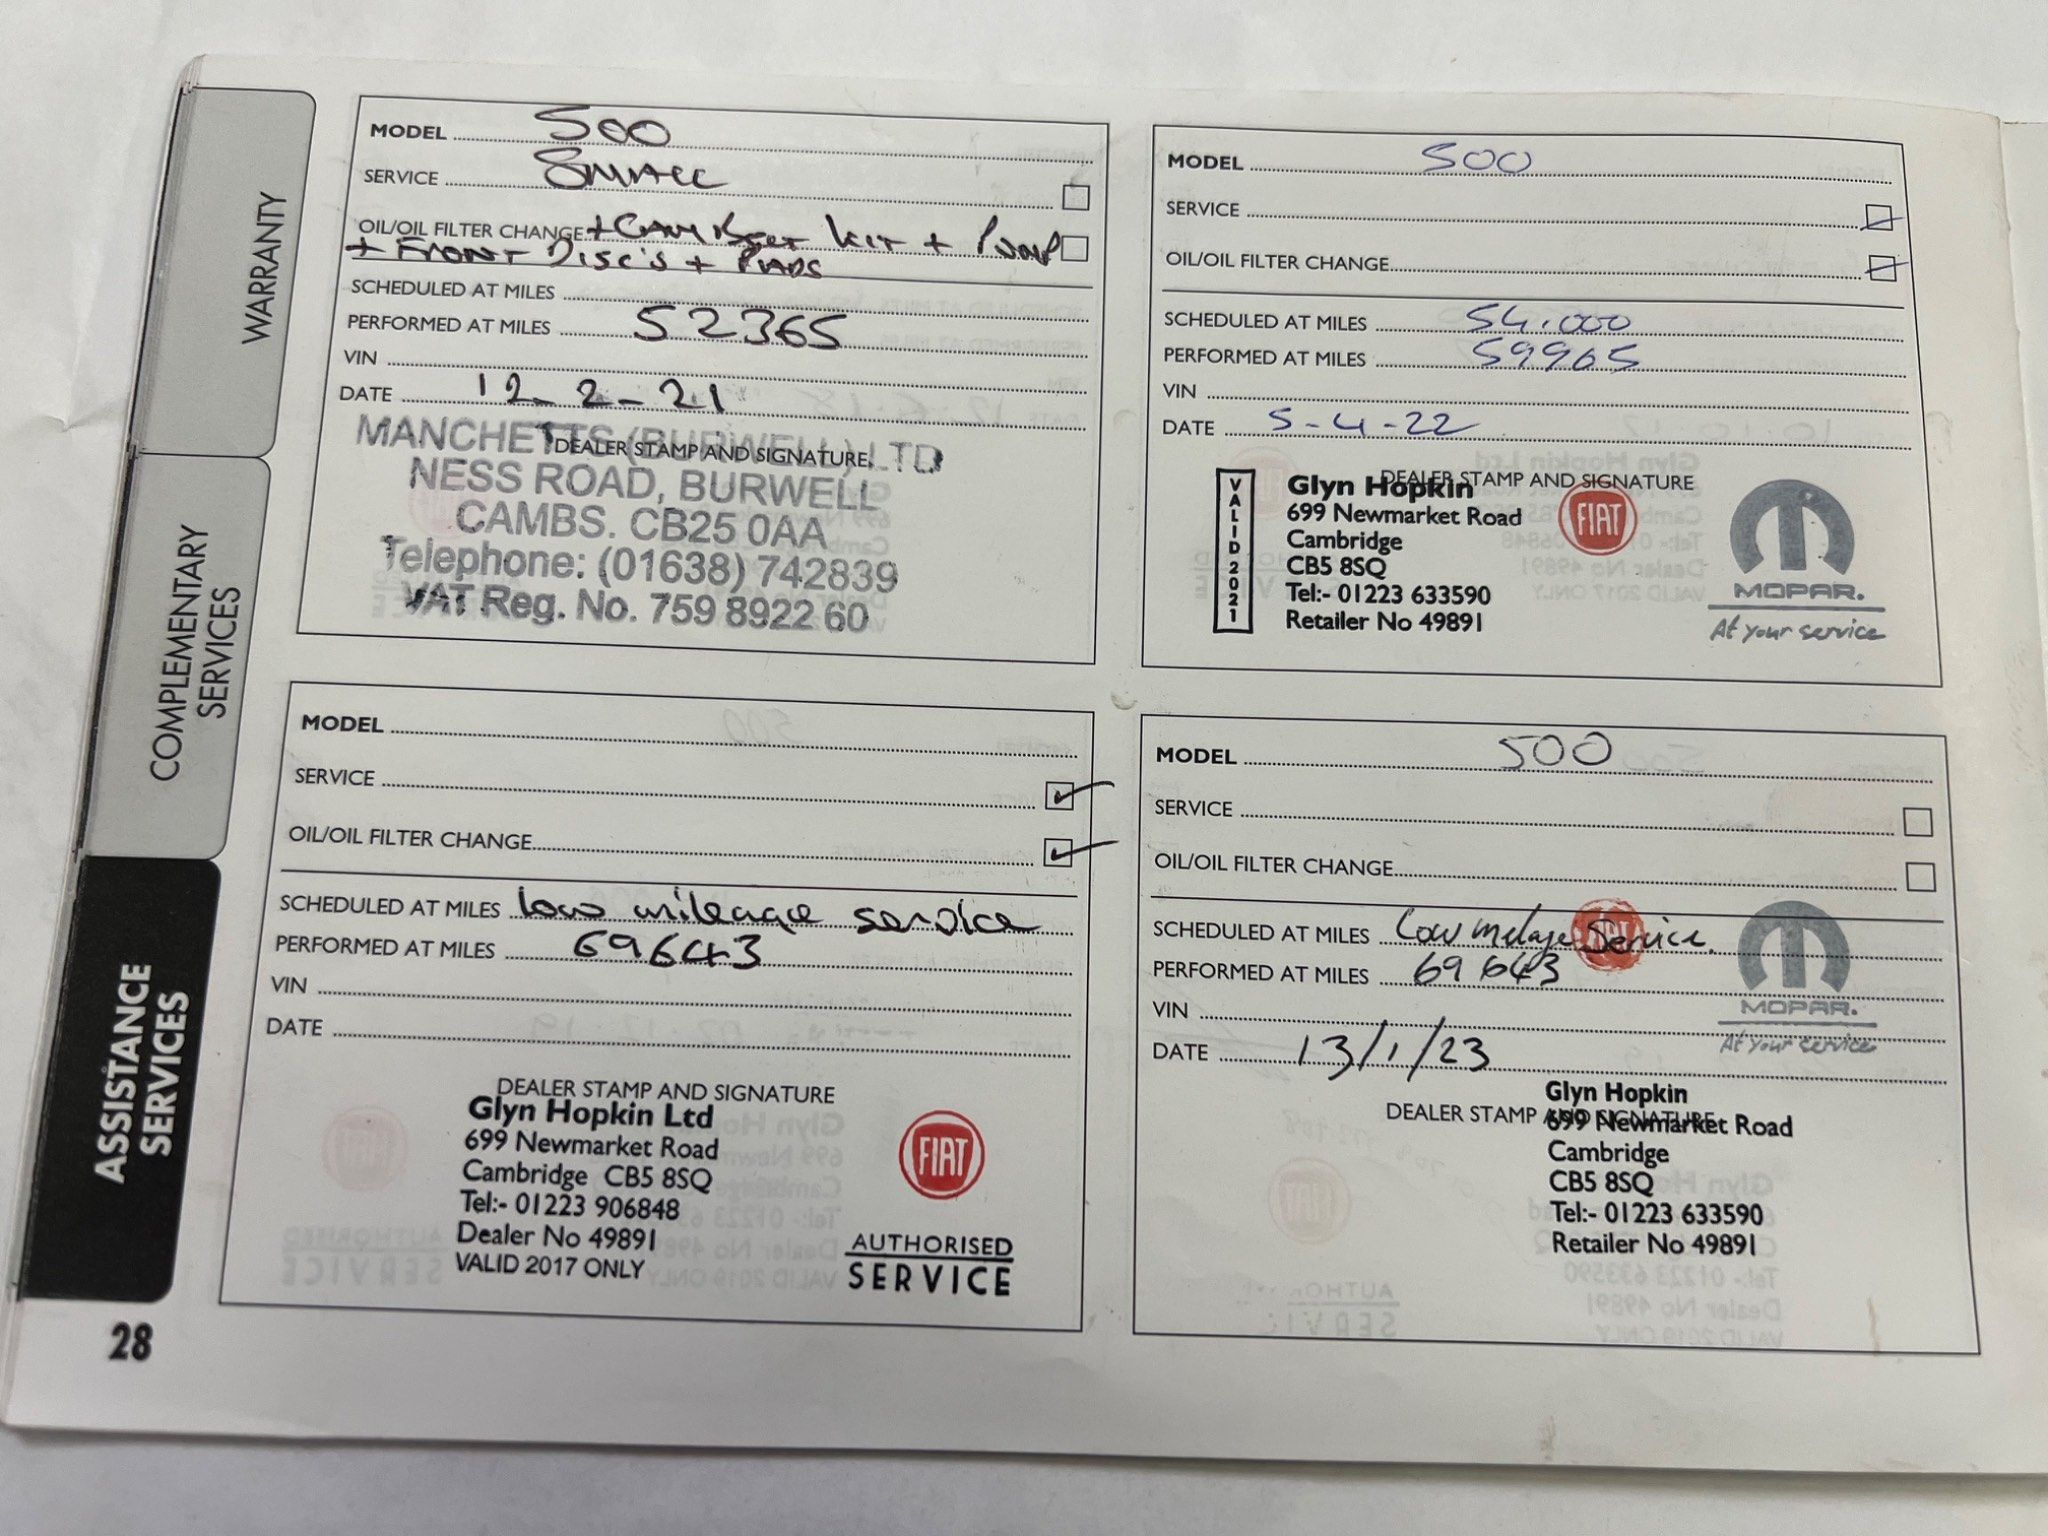 WARRANTY
COMPLEMENTARY
SERVICES
ASSISTANCE
SERVICES
28
MODEL 500
SERVICE SMALL
OIL/OIL FILTER CHANGE + CAM BELT KIT + PUMP
+ FRONT DISC'S + PADS
SCHEDULED AT MILES
PERFORMED AT MILES 52365
VIN
DATE 12-2-21
DEALER STAMP AND SIGNATURE
MANCHETTS (BURWELL) LTD
NESS ROAD, BURWELL
CAMBS. CB25 0AA
Telephone: (01638) 742839
VAT Reg. No. 759 8922 60
MODEL 500
SERVICE
OIL/OIL FILTER CHANGE
SCHEDULED AT MILES 54.000
PERFORMED AT MILES 59965
VIN
DATE 5-4-22
DEALER STAMP AND SIGNATURE
VALID 2021
Glyn Hopkin
699 Newmarket Road
Cambridge
CB5 8SQ
Tel:- 01223 633590
Retailer No 49891
FIAT
MOPAR.
At your service
MODEL
SERVICE
OIL/OIL FILTER CHANGE
SCHEDULED AT MILES low mileage service
PERFORMED AT MILES 69643
VIN
DATE
DEALER STAMP AND SIGNATURE
Glyn Hopkin Ltd
699 Newmarket Road
Cambridge CB5 8SQ
Tel:- 01223 906848
Dealer No 49891
VALID 2017 ONLY
FIAT
AUTHORISED
SERVICE
MODEL 500
SERVICE
OIL/OIL FILTER CHANGE
SCHEDULED AT MILES Low milage Service.
FIAT
PERFORMED AT MILES 69643
VIN
MOPAR.
At your service
DATE 13/1/23
DEALER STAMP AND SIGNATURE
Glyn Hopkin
699 Newmarket Road
Cambridge
CB5 8SQ
Tel:- 01223 633590
Retailer No 49891